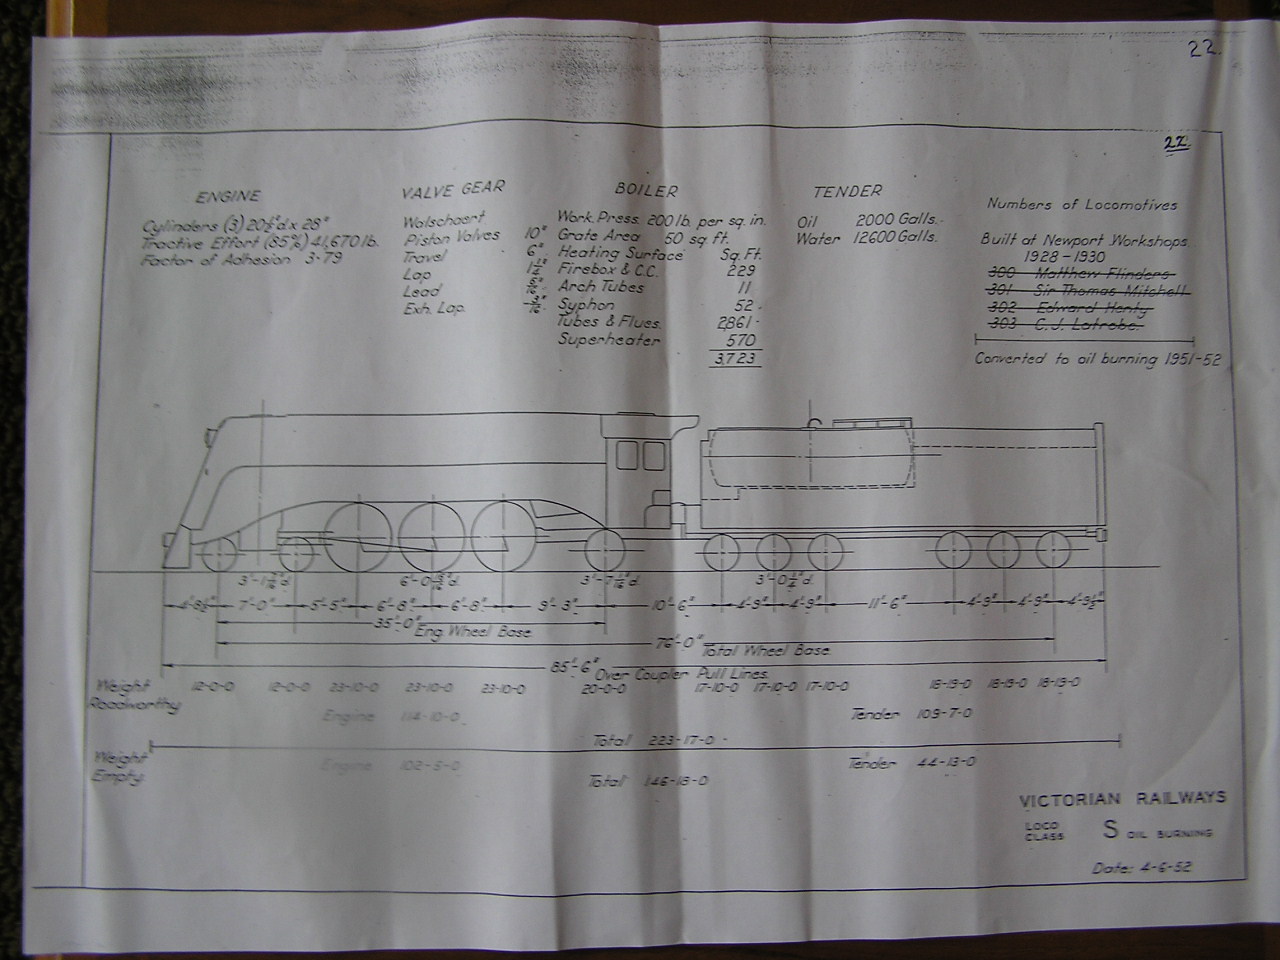 22.
22.
ENGINE
Cylinders (3) 20½"d x 28"
Tractive Effort (85%) 41,670 lb.
Factor of Adhesion 3·79
VALVE GEAR
Walschaert
Piston Valves 10"
Travel 6"
Lap
Lead
Exh. Lap.
BOILER
Work. Press. 200 lb. per sq. in.
Grate Area 50 sq. ft.
Heating Surface Sq. Ft.
Firebox & C.C. 229
Arch Tubes 11
Syphon 52
Tubes & Flues. 2861
Superheater 570
3,723
TENDER
Oil 2000 Galls.
Water 12600 Galls.
Numbers of Locomotives
Built at Newport Workshops.
1928 - 1930
300 Matthew Flinders
301 Sir Thomas Mitchell
302 Edward Henty
303 C.J. Latrobe.
Converted to oil burning 1951-52
4'-8½" 7'-0" 5'-5" 6'-8" 6'-8" 9'-3" 10'-6" 4'-9" 4'-9" 11'-6" 4'-9" 4'-9" 4'-9½"
35'-0" Eng. Wheel Base
76'-0" Total Wheel Base
85'-6" Over Coupler Pull Lines.
Weight Roadworthy
12-0-0 12-0-0 23-10-0 23-10-0 23-10-0 20-0-0 17-10-0 17-10-0 17-10-0 18-19-0 18-19-0
Engine 114-10-0 Tender 109-7-0
Total 223-17-0
Weight Empty
Engine 102-5-0 Tender 44-13-0
Total 146-18-0
VICTORIAN RAILWAYS
LOCO CLASS S OIL BURNING
Date: 4-6-52